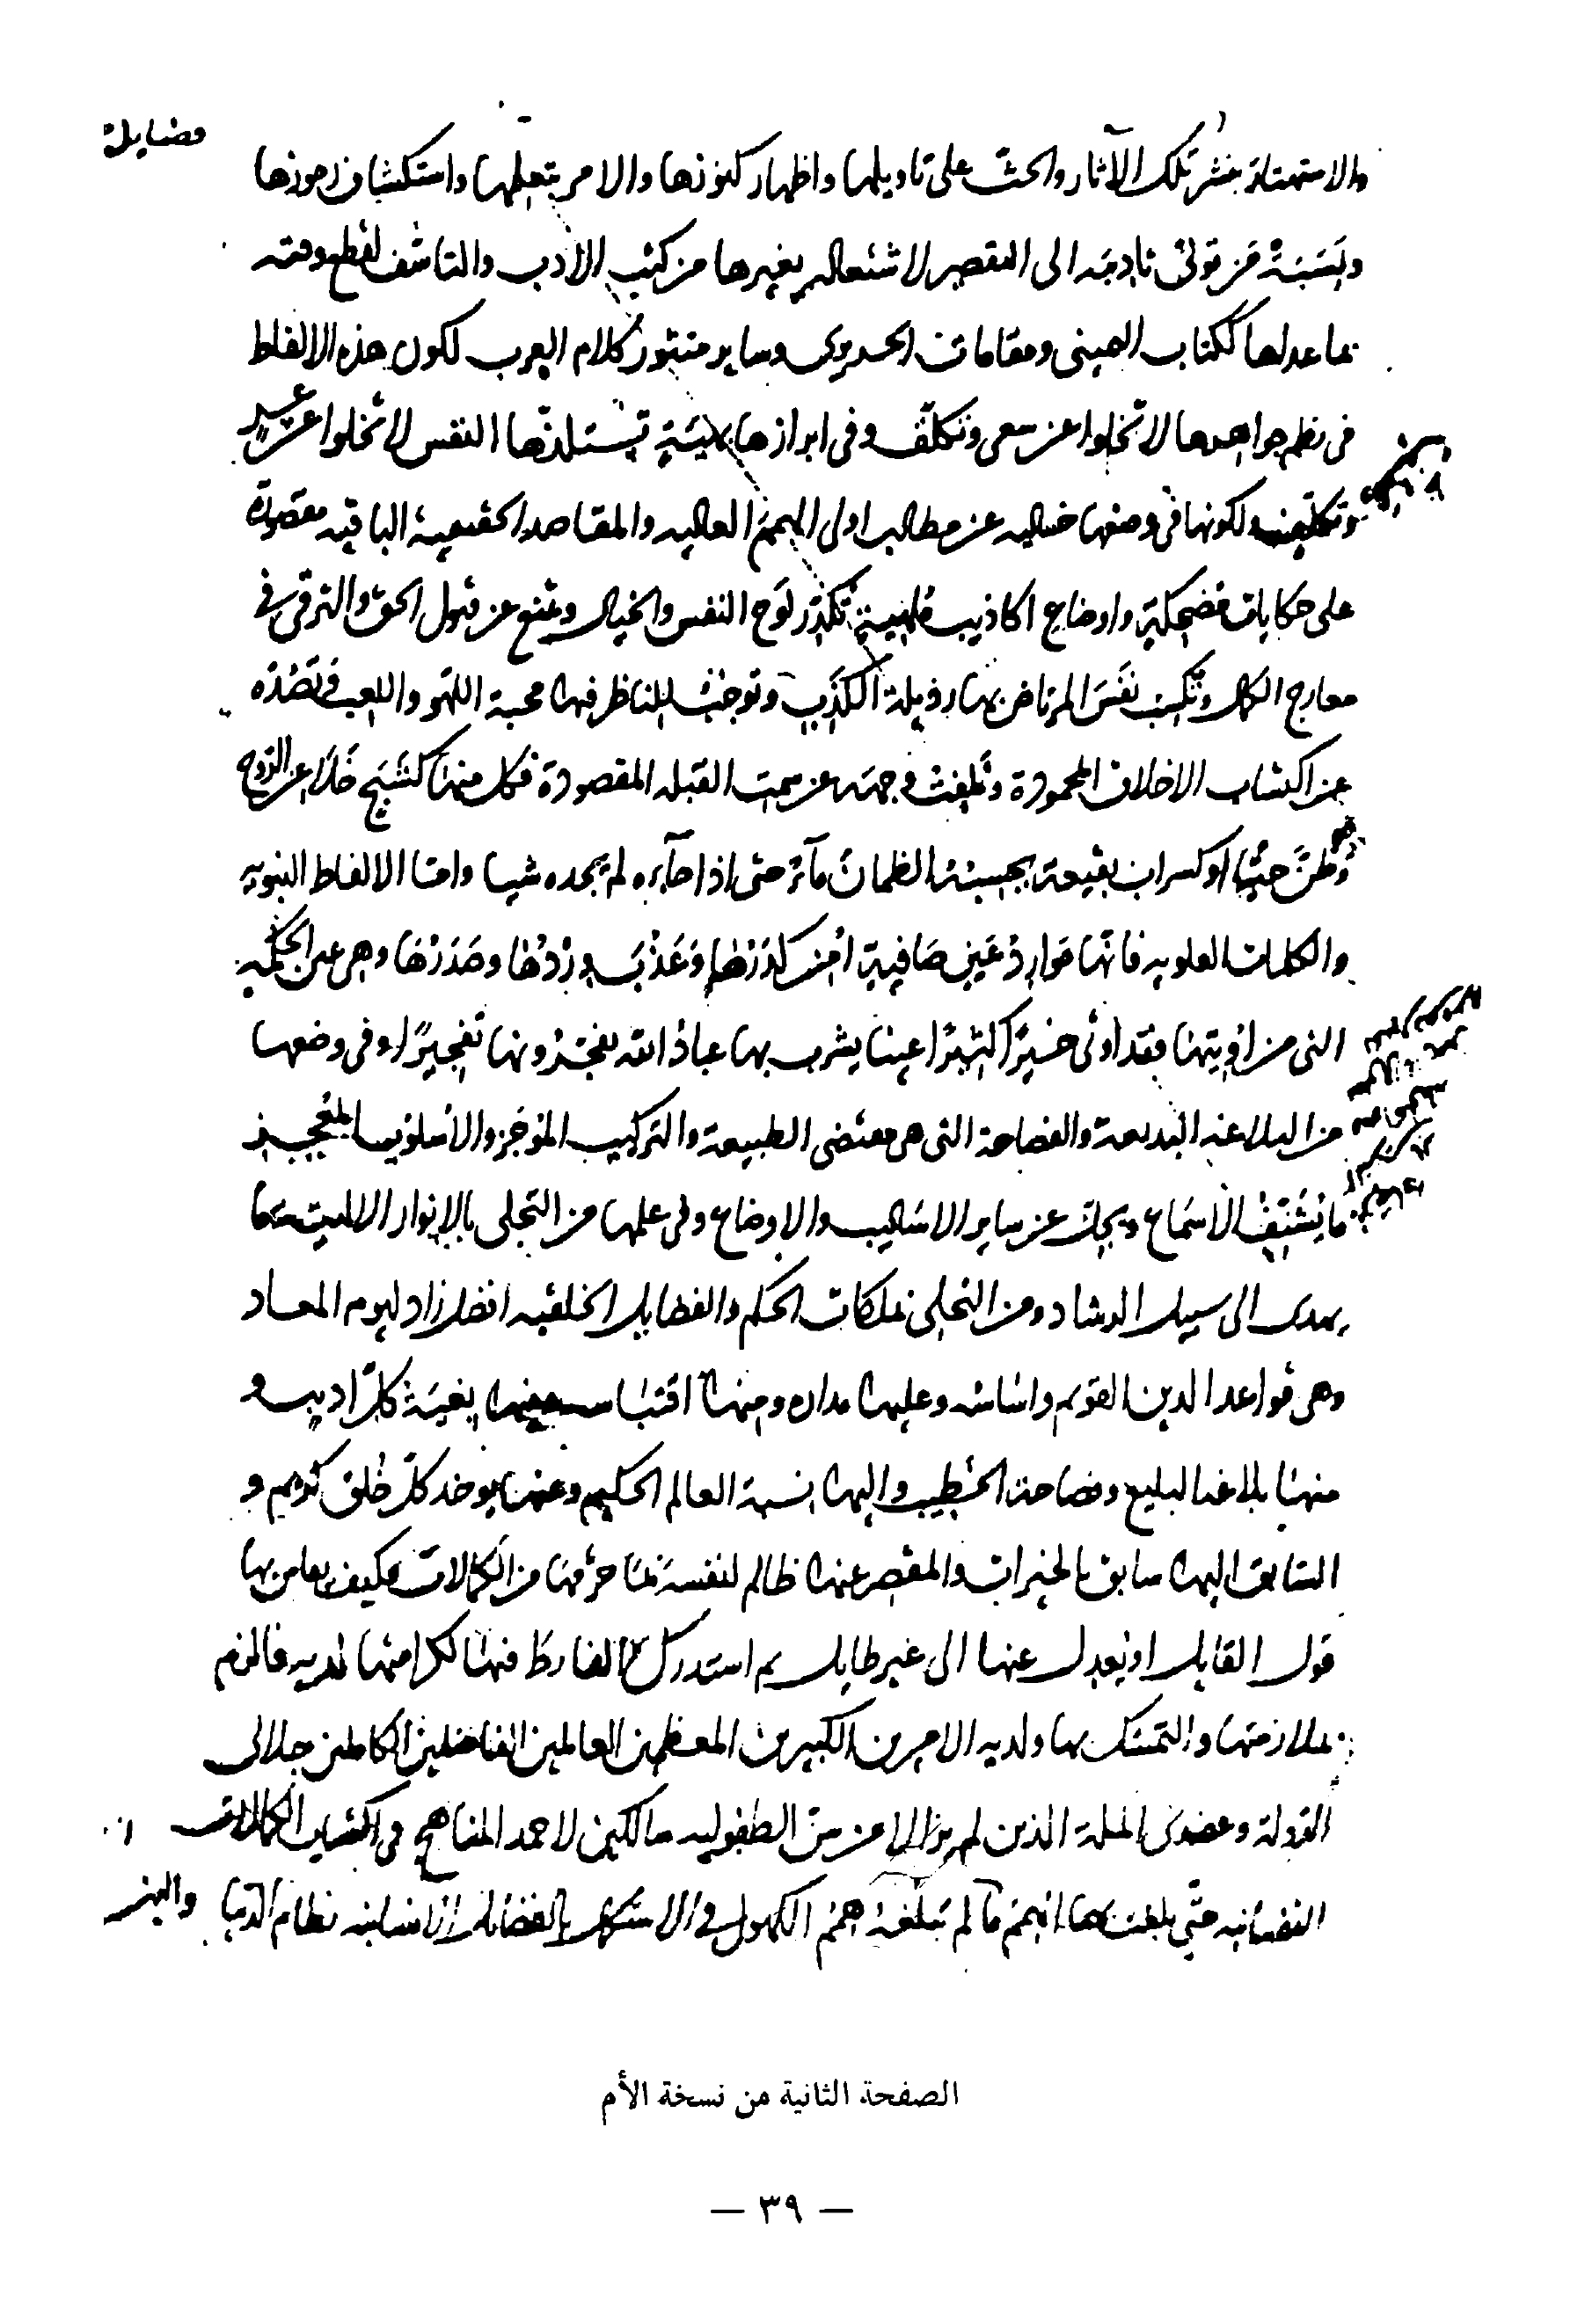 فضايله
والاستهتار بنشر تلك الآثار والحث على تاويلها واظهار كنوزها والامر بتعلمها واستكشاف رموزها
ونسبة من تولى تاديبه الى التقصير لاشتغاله بغيرها من كتب الادب والتاسف لقطع وقته
بما عداها ككتاب اليمينى ومقامات الحريرى وساير منثور كلام العرب لكون هذه الالفاظ
فى نظم جواهرها لا تخلوا عن سعى وتكلف وفى ابرازها بهيئة تستلذها النفس لا تخلوا عن
ولكونها فى وضعها خاليه عن مطالب اولى الهمم العاليه والمقاصد الحقيقية الباقيه مقصورة
على حكايات مضحكة واوضاع اكاذيب ملهية تكدر لوح النفس والخيال وتمنع عن قبول الحق والترقى في
معارج الكمال وتكسب نفس المرتاض بها رذيلة الكذب وتوجب للناظر فيها محبة اللهو واللعب فتصده
عن اكتساب الاخلاق المحمودة وتلفت وجهه عن سمت القبله المقصودة فكل منها كشبح خلا عن الروح
وظن حيا او كسراب بقيعة يحسبه الظمان مآء حتى اذا جآءه لم يجده شيا واما الالفاظ النبويه
والكلمات العلويه فانها موارد عين صافية امن كدرها وعذب وردها وصدرها وهى عين الحكمه
التى من اوتيها فقد اوتى خيرا كثيرا عينا يشرب بها عباد الله يفجرونها تفجيرا وفى وضعها
من البلاغه البديعة والفصاحة التى هى مقتضى الطبيعة والتركيب الموجز والاسلوب المعجز
ما يشنف الاسماع ويجل عن ساير الاساليب والاوضاع وفى علمها من التجلى بالانوار الالهية ما
يهدى الى سبيل الرشاد ومن التحلى بملكات الحكم والفضايل الخلقيه افضل زاد ليوم المعاد
وهى قواعد الدين القويم واساسه وعليها مداره ومنها اقتباسه بغية كل اديب و
منها بلاغه البليغ وفصاحة الخطيب واليها نسبة العالم الحكيم وعنها يوخذ كل خلق كريم و
السابق اليها سابق بالخيرات والمقصر عنها ظالم لنفسه بما حرمها من الكمالات فكيف يقاس بها
قول القايل او يعدل عنها الى غير طايل ثم استدرك الفارط فيها لكرامتها لديه فالزم
بملازمتها والتمسك بها ولديه الاميرين الكبيرين المعظمين العالمين الفاضلين الكاملين جلالى
الدولة وعضدى الملة الذين لم يزالا من سن الطفوليه سالكين لاحمد المناهج فى اكتساب الكمالات
النفسانيه حتى بلغت بهما الهمم ما لم تبلغه همم الكهول فى الاستكمال بالفضايل الانسانيه نظام الدنيا
والدين
الصفحة الثانية من نسخة الأم
— ٣٩ —